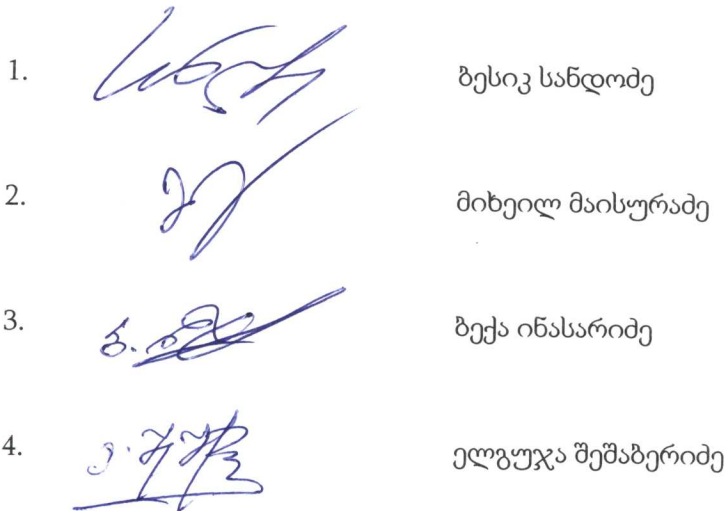 1. ბესიკ სანდოძე
2. მიხეილ მაისურაძე
3. ბექა ინასარიძე
4. ელგუჯა შეშაბერიძე